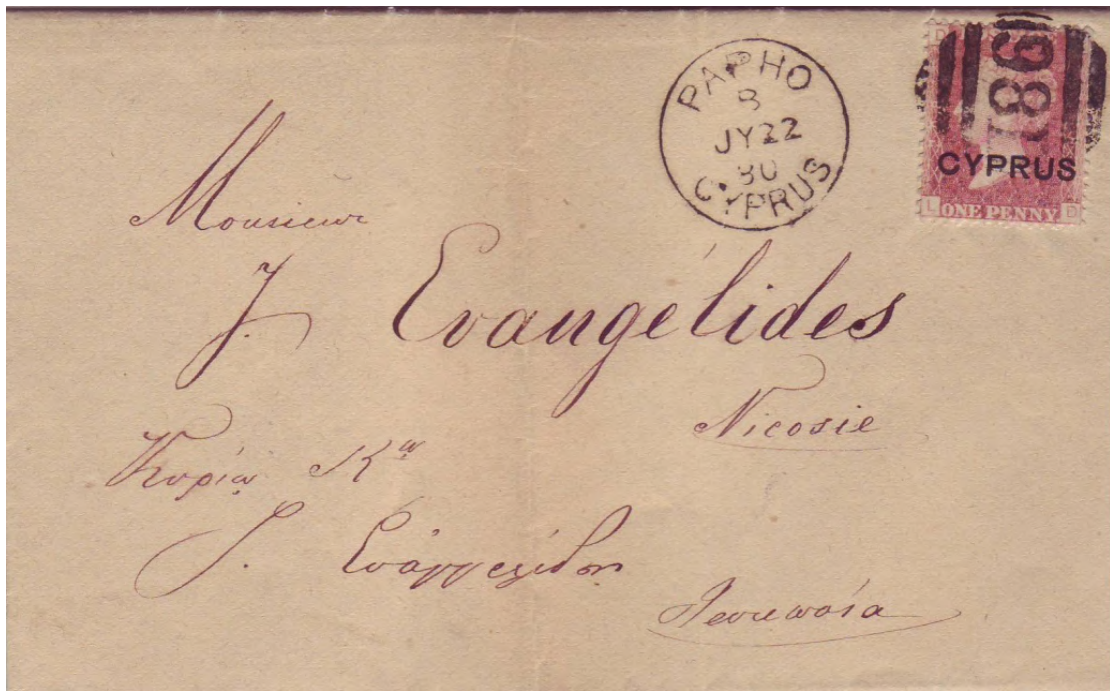 PAPHO
B
JY 22
80
CYPRUS
D L
981
CYPRUS
L ONE PENNY D
Monsieur
J. Evangélides
Nicosie
Κυρίῳ Κῳ
J. Εὐαγγελίδῃ
Λευκωσία